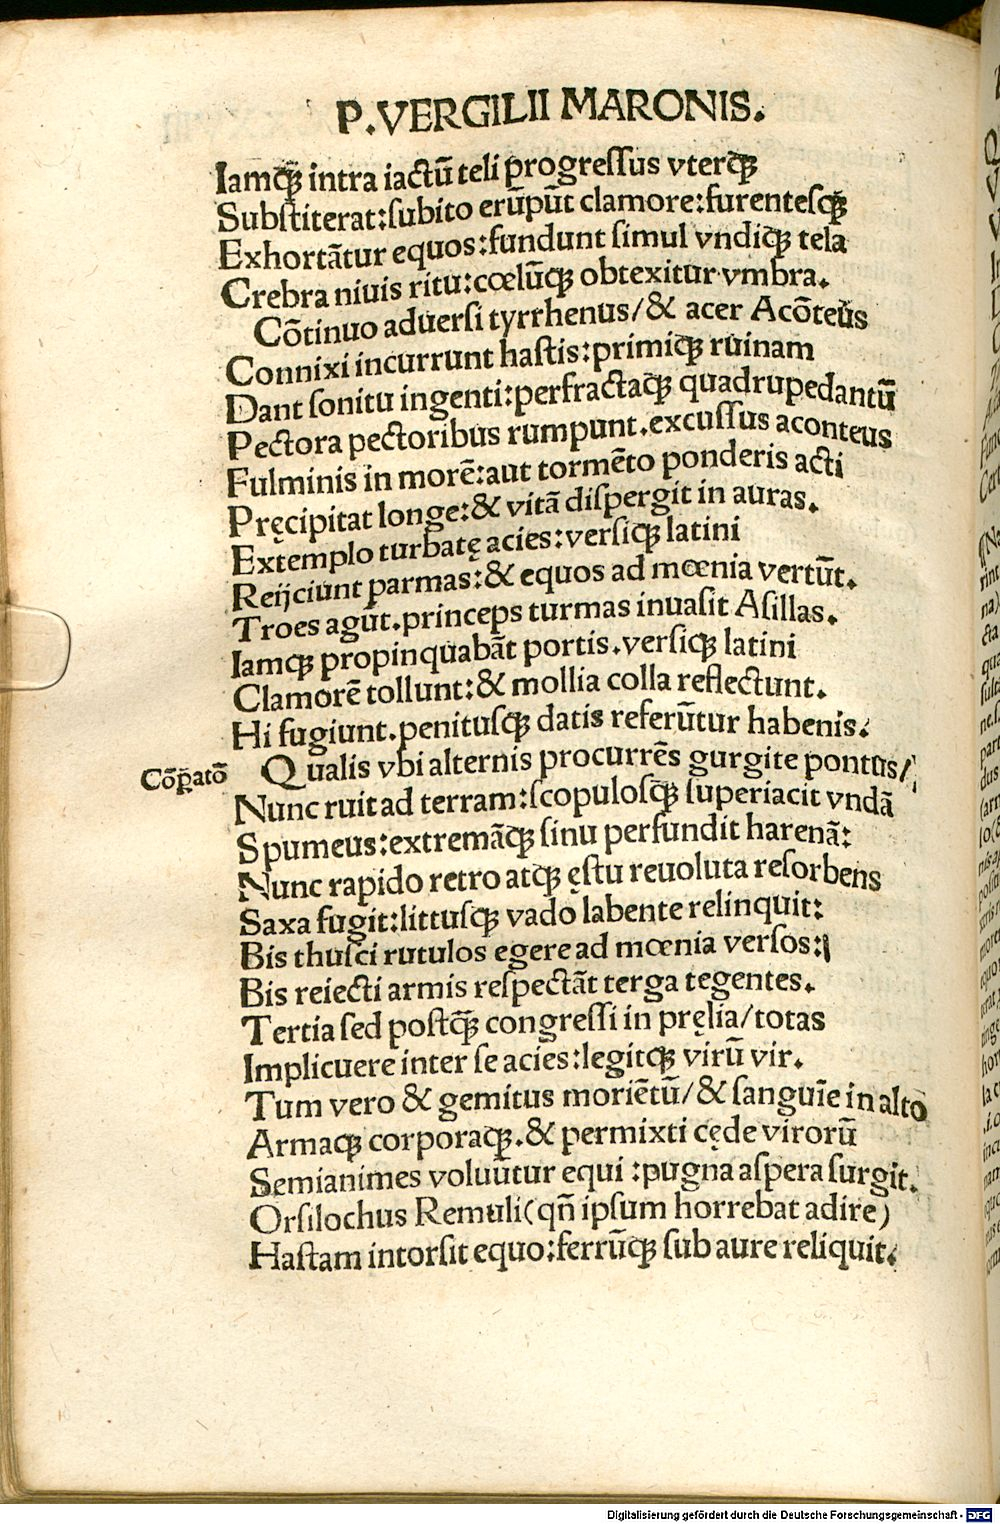 P.VERGILII MARONIS.
Iamqꝫ intra iactū teli progreſſus vterqꝫ
Subſtiterat:ſubito erūpūt clamore:furenteſqꝫ
Exhortātur equos:fundunt ſimul vndiqꝫ tela
Crebra niuis ritu:cœlūqꝫ obtexitur vmbra.
Cōtinuo aduerſi tyrrhenus/& acer Acōteus
Connixi incurrunt haſtis:primiqꝫ ruinam
Dant ſonitu ingenti:perfractaqꝫ quadrupedantū
Pectora pectoribus rumpunt.excuſſus aconteus
Fulminis in morē:aut tormēto ponderis acti
Pręcipitat longe:& vitā diſpergit in auras.
Extemplo turbatę acies:verſiqꝫ latini
Reijciunt parmas:& equos ad mœnia vertūt.
Troes agūt.princeps turmas inuaſit Aſillas.
Iamqꝫ propinquabāt portis.verſiqꝫ latini
Clamorē tollunt:& mollia colla reflectunt.
Hi fugiunt.penituſqꝫ datis referūtur habenis.
Cōꝑatō Qualis vbi alternis procurrēs gurgite pontus/
Nunc ruit ad terram:ſcopuloſqꝫ ſuperiacit vndā
Spumeus:extremāqꝫ ſinu perfundit harenā:
Nunc rapido retro atqꝫ ęſtu reuoluta reſorbens
Saxa fugit:littuſqꝫ vado labente relinquit:
Bis thuſci rutulos egere ad mœnia verſos:
Bis reiecti armis reſpectāt terga tegentes.
Tertia ſed poſtqꝫ̄ congreſſi in pręlia/totas
Implicuere inter ſe acies:legitqꝫ virū vir.
Tum vero & gemitus moriētū/& ſanguīe in alto
Armaqꝫ corporaqꝫ.& permixti cęde virorū
Semianimes voluūtur equi:pugna aſpera ſurgit.
Orſilochus Remuli(qn̄ ipſum horrebat adire)
Haſtam intorſit equo:ferrūqꝫ ſub aure reliquit.
Digitalisierung gefördert durch die Deutsche Forschungsgemeinschaft - DFG